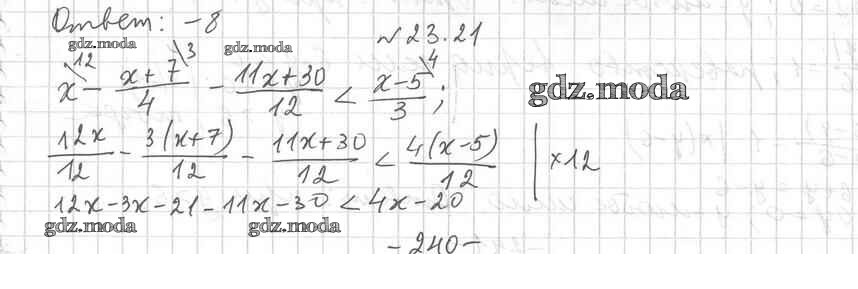 Ответ: -8
gdz.moda gdz.moda
№ 23.21
x^{\12} - (x+7)/4^{\3} - (11x+30)/12 < (x-5)/3^{\4};
gdz.moda
12x/12 - 3(x+7)/12 - (11x+30)/12 < 4(x-5)/12 | ×12
12x-3x-21-11x-30 < 4x-20
gdz.moda gdz.moda
-240-